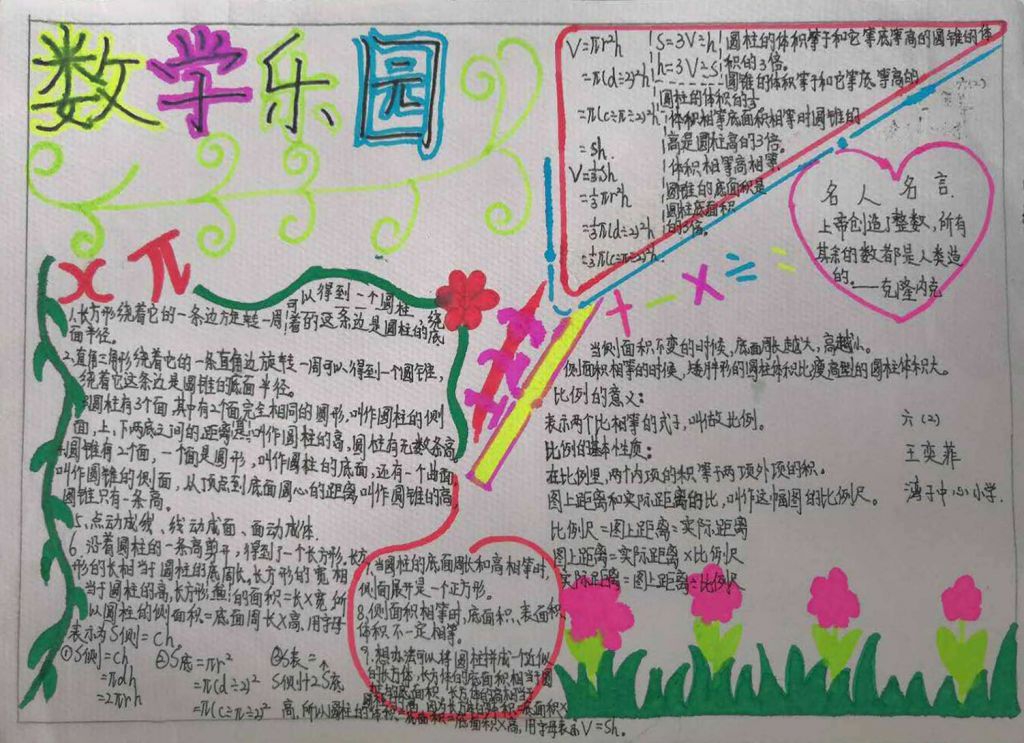 数学乐园
x π
1.长方形绕着它的一条边方旋转一周可以得到一个圆柱,绕
着的这条边是圆柱的底
面半径。
2.直角三角形绕着它的一条直角边旋转一周可以得到一个圆锥,
绕着它这条边是圆锥的底面半径。
圆柱有3个面,其中有2个面完全相同的圆形,叫作圆柱的侧
面,上、下两底之间的距离是叫作圆柱的高,圆柱有无数条高
圆锥有2个面,一个面是圆形,叫作圆柱的底面,还有一个曲面
叫作圆锥的侧面,从顶点到底面圆心的距离叫作圆锥的高,
圆锥只有一条高。
5、点动成线、线动成面、面动成体.
6、沿着圆柱的一条高剪开,得到了一个长方形.长方
形的长相当于圆柱的底周长.长方形的宽相
当于圆柱的高,长方形的面积=长×宽,所
以圆柱的侧面积=底面周长×高.用字母
表示为S侧=Ch
①S侧=Ch
=πdh
=2πrh
②S底=πr²
=π(d÷2)²
=π(C÷π÷2)²
③S表=
S侧+2S底
7,当圆柱的底面周长和高相等时,
侧面展开是一个正方形。
8.侧面积相等时,底面积、表面积
体积不一定相等。
9.想办法可以将圆柱拼成一个近似
的长方体,长方体的底面积相当于圆
柱的底面积,长方体的高相当于
高,所以圆柱的体积=底面积×高,用字母表示V=Sh。
V=πr²h
=π(d÷2)²h
=π(C÷π÷2)²h
=Sh
V=⅓Sh
=⅓πr²h
=⅓π(d÷2)²h
=⅓π(C÷π÷2)²h
S=3V÷h
h=3V÷S
圆柱的体积等于和它等底等高的圆锥的体
积的3倍。
圆锥的体积等于和它等底等高的
圆柱的体积的⅓
体积相等底面积相等时圆锥的
高是圆柱高的3倍。
体积相等高相等
圆锥的底面积是
圆柱底面积
的3倍。
六(2)
名人名言.
上帝创造了整数,所有
其余的数都是人类造
的。——克隆内克
+ - × ÷ =
当侧面积不变的时候,底面周长越大,高越小。
侧面积相等的时候,矮胖形的圆柱体积比瘦高型的圆柱体积大。
比例的意义:
表示两个比相等的式子,叫做比例。
比例的基本性质:
在比例里,两个内项的积等于两项外项的积.
图上距离和实际距离的比,叫作这幅图的比例尺。
比例尺=图上距离÷实际距离
图上距离=实际距离×比例尺
实际距离=图上距离÷比例尺
六(2)
王奕菲
湾子中心小学.